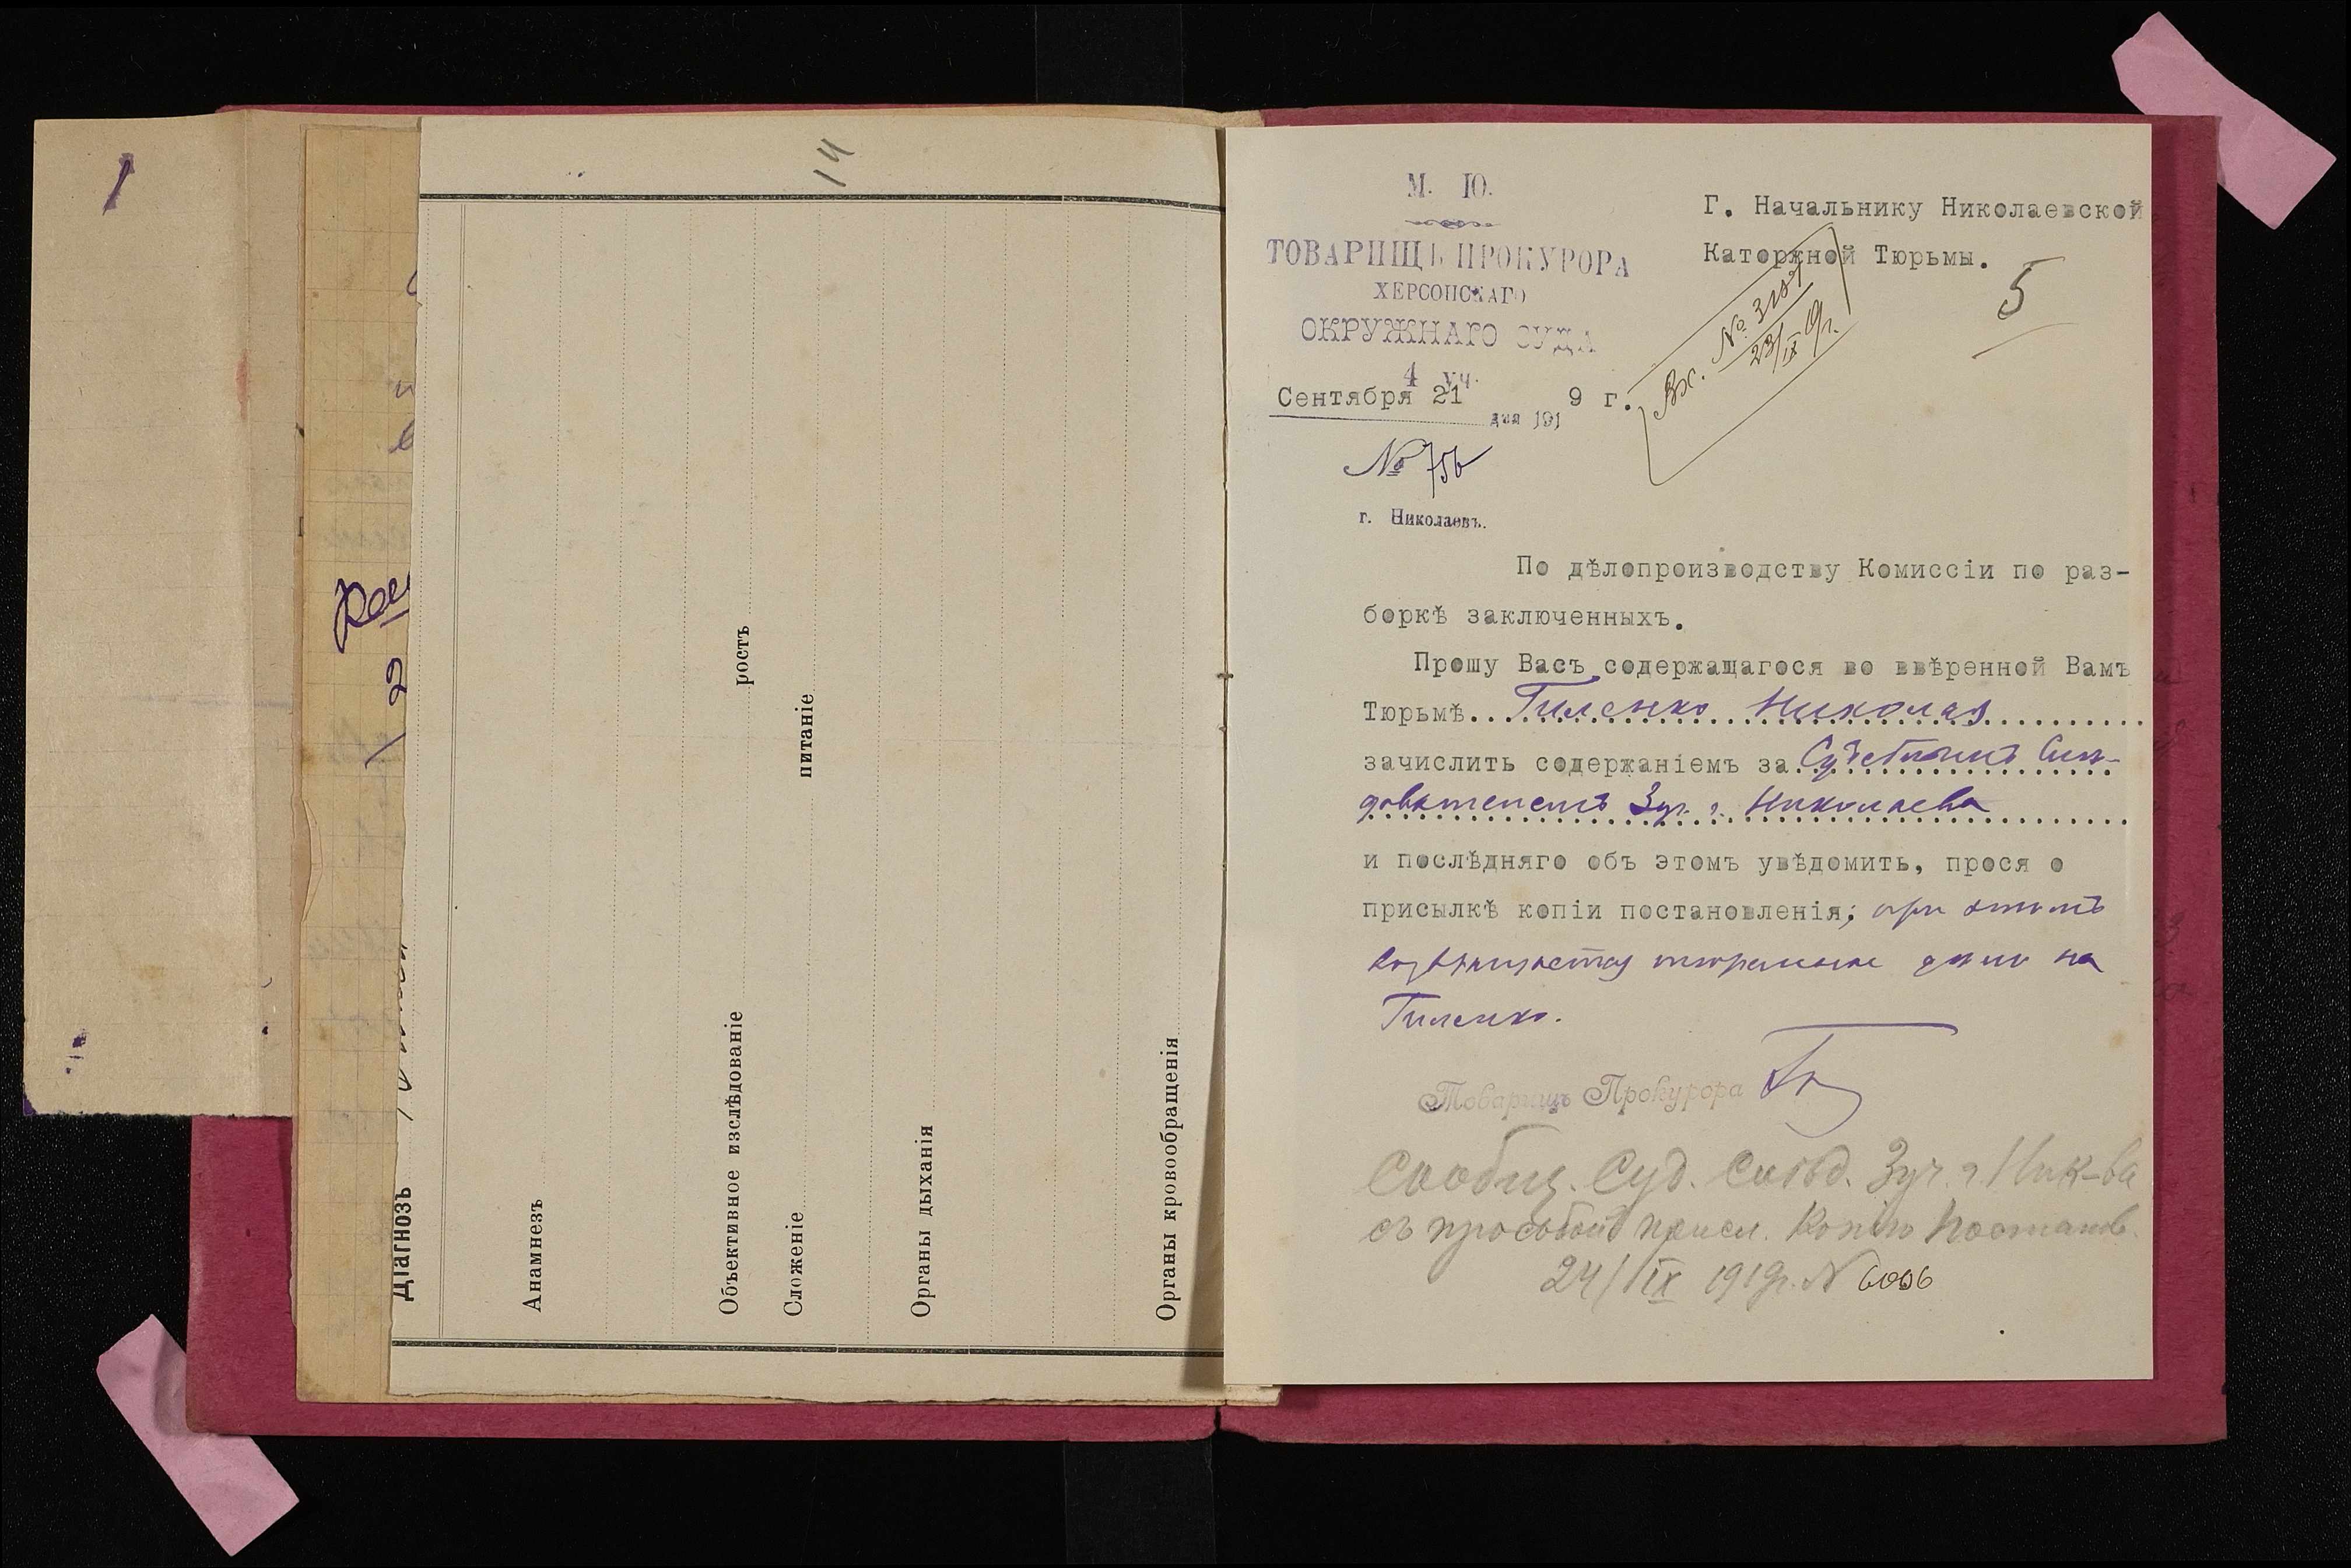 1
14
Діагнозъ
Анамнезъ
Объективное изслѣдованіе ростъ
Сложеніе питаніе
Органы дыханія
Органы кровообращенія
М. Ю.
ТОВАРИЩЪ ПРОКУРОРА
ХЕРСОНСКАГО
ОКРУЖНАГО СУДА
4 уч.
Сентября 21 дня 1919 г.
№ 756
г. Николаевъ.
Г. Начальнику Николаевской
Каторжной Тюрьмы.
5
Вх. №
23/IX 19г.
По дѣлопроизводству Комиссіи по раз-
боркѣ заключенныхъ.
Прошу Васъ содержащагося во ввѣренной Вамъ
Тюрьмѣ...Гиленко Николая
зачислить содержаніемъ за Судебнымъ Слѣ-
дователемъ 3 уч. г. Николаева
и послѣдняго объ этомъ увѣдомить, прося о
присылкѣ копіи постановленія; при этомъ
возвращается тюремное дѣло на
Гиленко.
Товарищъ Прокурора
Сообщ. Суд. Слѣд. 3 уч. г. Ник-ва
съ просьбой присл. копію постанов.
24/IX 1919г. № 6006